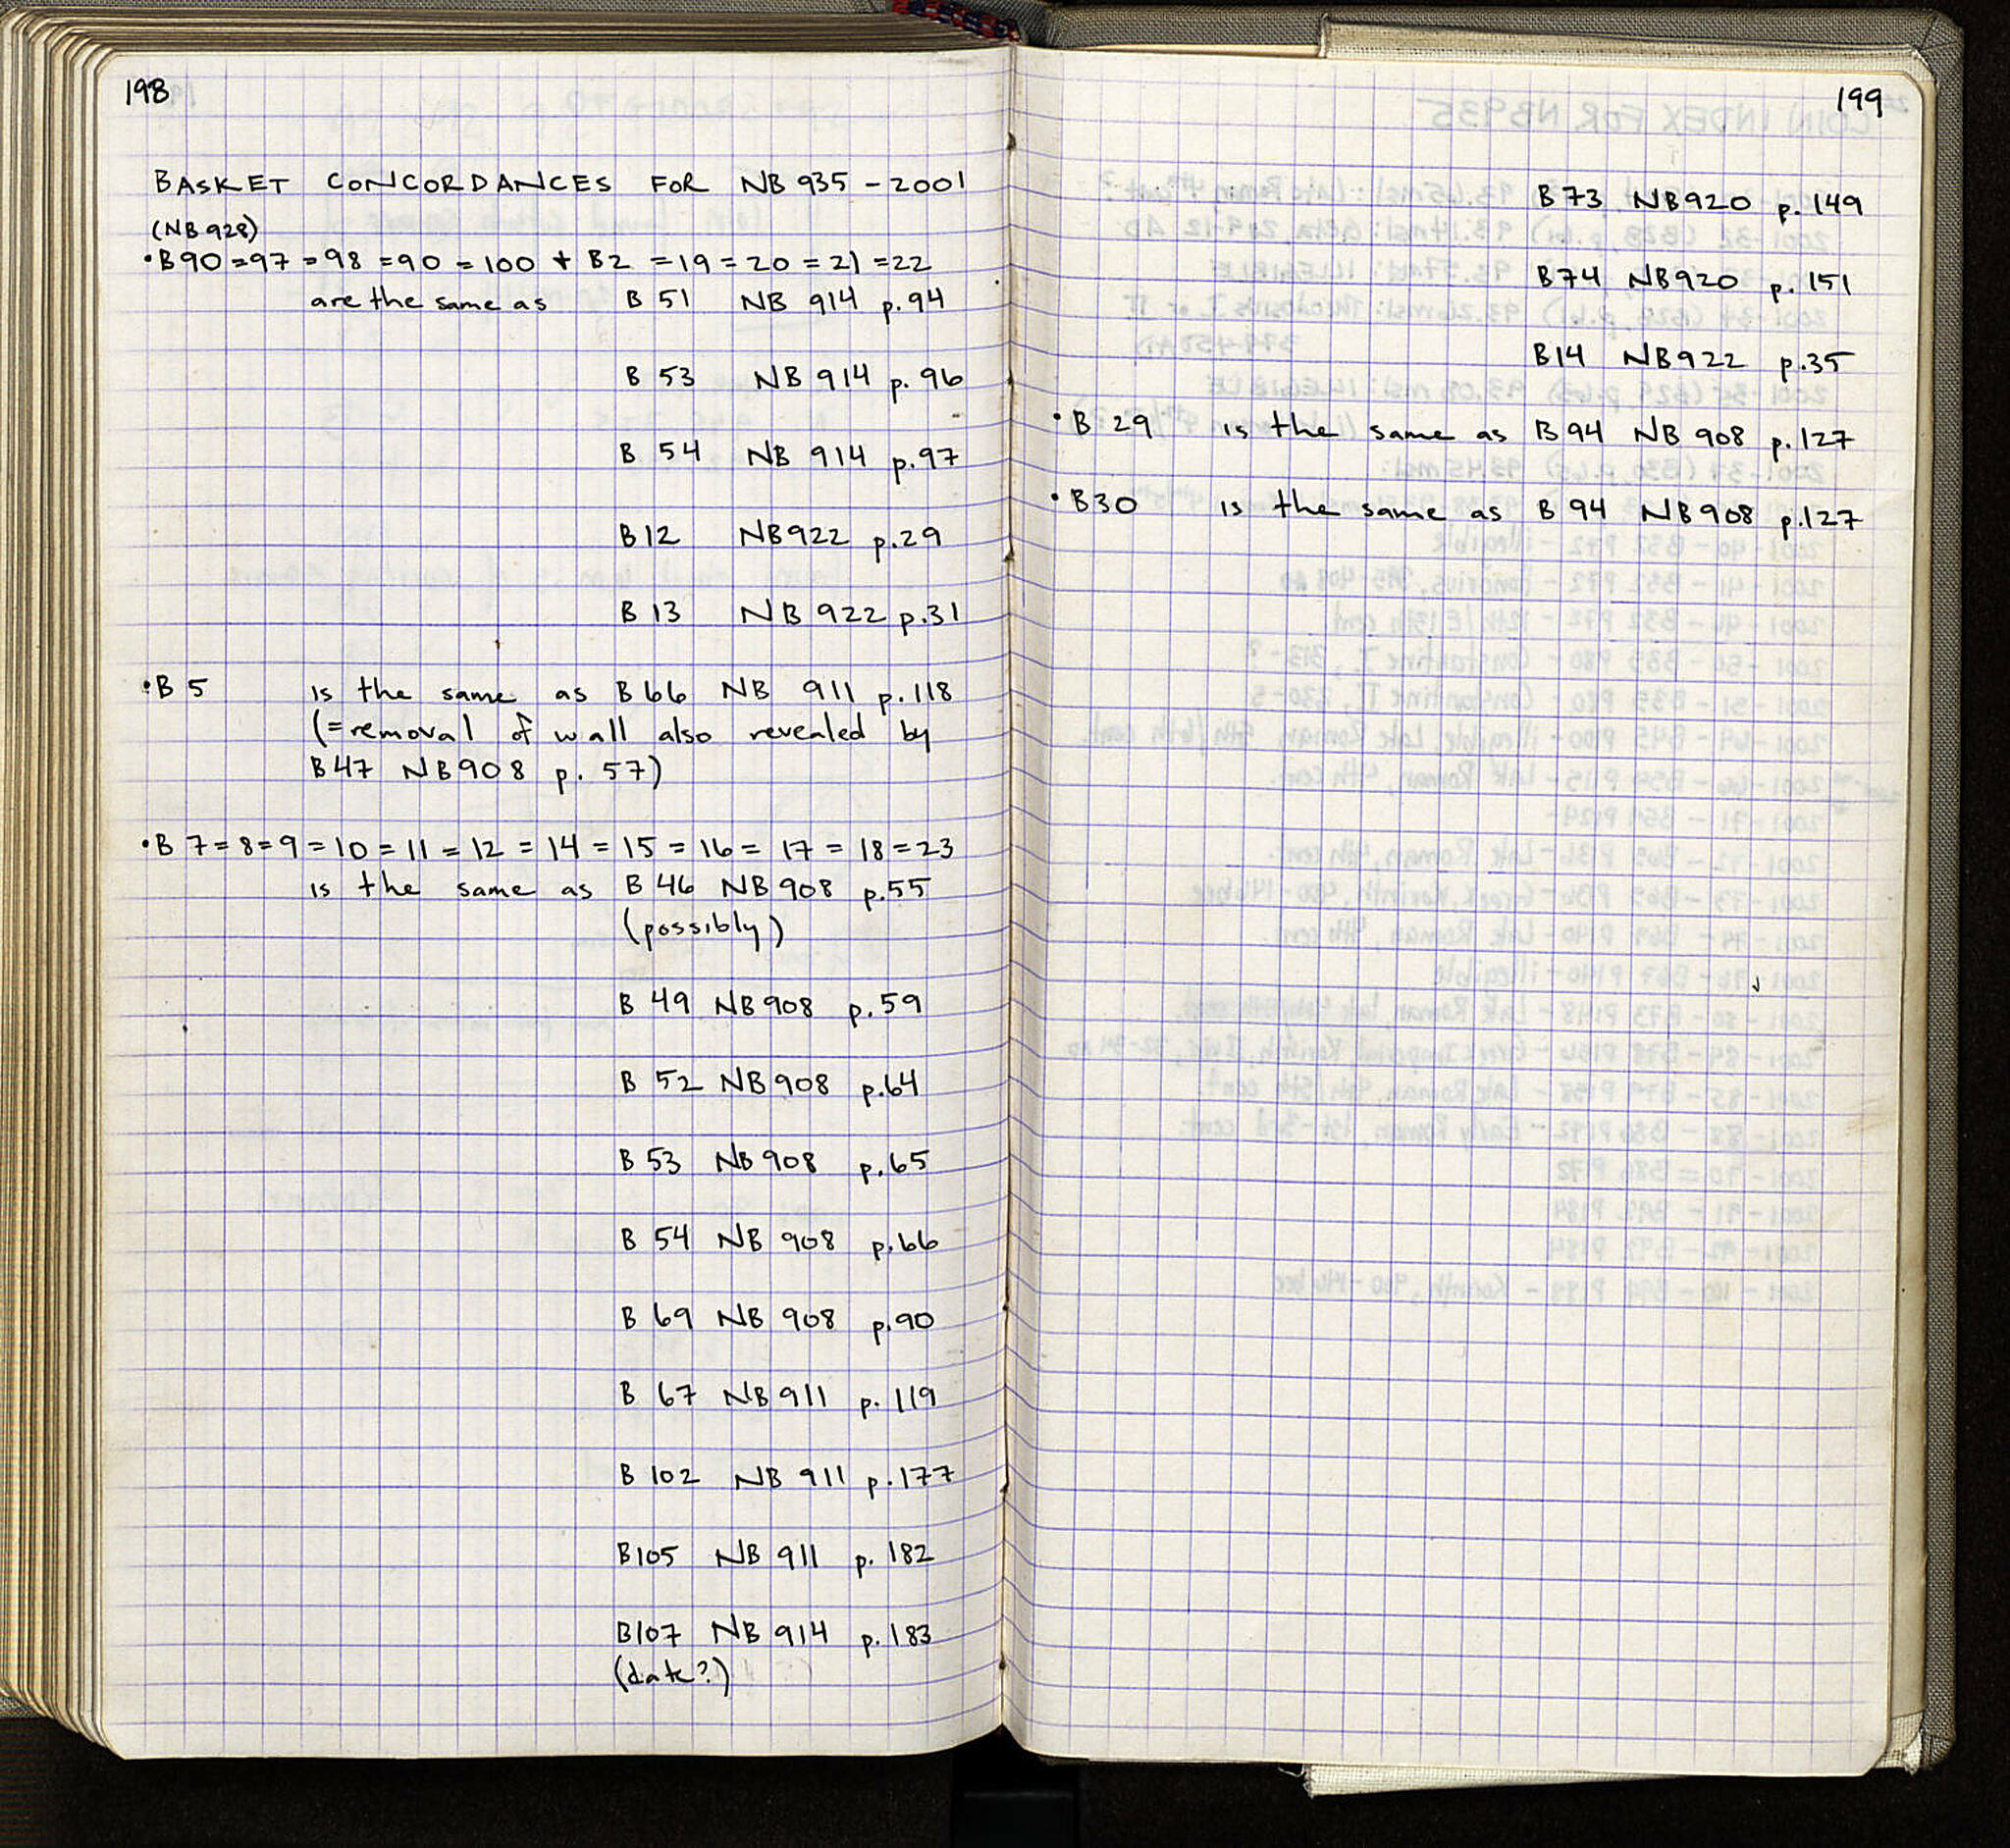 198
BASKET CONCORDANCES FOR NB 935 - 2001
(NB 928)
• B90 = 97 = 98 = 90 = 100 + B2 = 19 = 20 = 21 = 22
are the same as B 51 NB 914 p. 94
B 53 NB 914 p. 96
B 54 NB 914 p. 97
B 12 NB922 p. 29
B 13 NB 922 p. 31
• B 5 is the same as B 66 NB 911 p. 118
(= removal of wall also revealed by
B 47 NB908 p. 57)
• B 7 = 8 = 9 = 10 = 11 = 12 = 14 = 15 = 16 = 17 = 18 = 23
is the same as B 46 NB 908 p. 55
(possibly)
B 49 NB 908 p. 59
B 52 NB 908 p. 64
B 53 NB 908 p. 65
B 54 NB 908 p. 66
B 69 NB 908 p. 90
B 67 NB 911 p. 119
B 102 NB 911 p. 177
B105 NB 911 p. 182
B107 NB 914 p. 183
(date?)
199
B 73 NB920 p. 149
B74 NB920 p. 151
B14 NB922 p. 35
• B 29 is the same as B 94 NB 908 p. 127
• B30 is the same as B 94 NB 908 p. 127